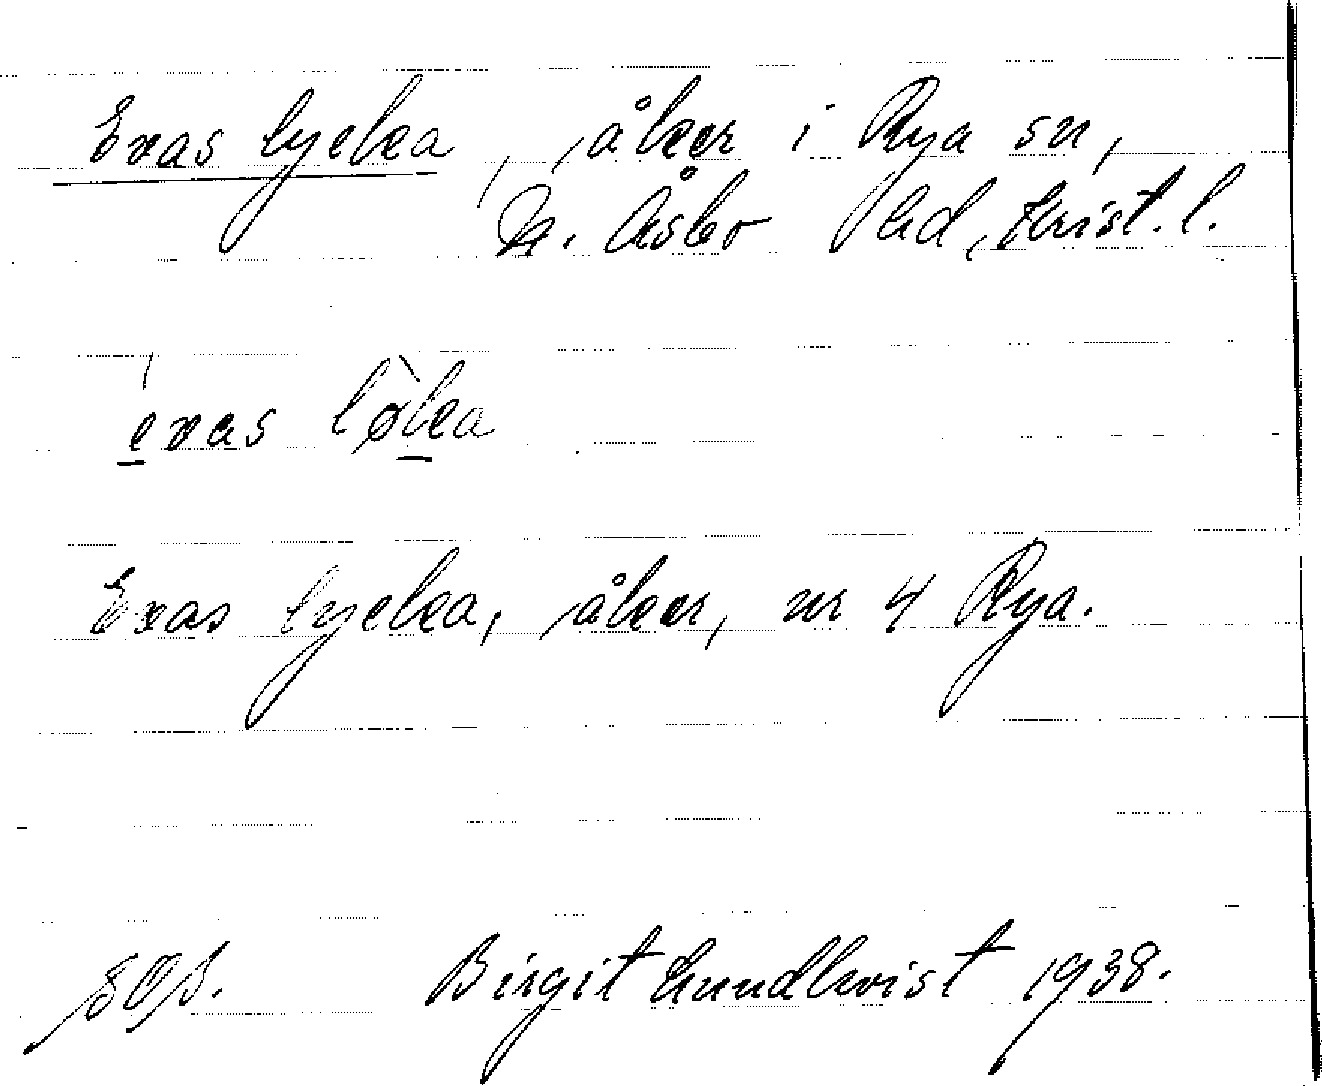 Evas lycka, åker i Rya sn,
N. Åsbo hd, Krist. l.
evas løka
Evas lycka, åker, nr 4 Rya.
Birgit Lundkvist 1938.